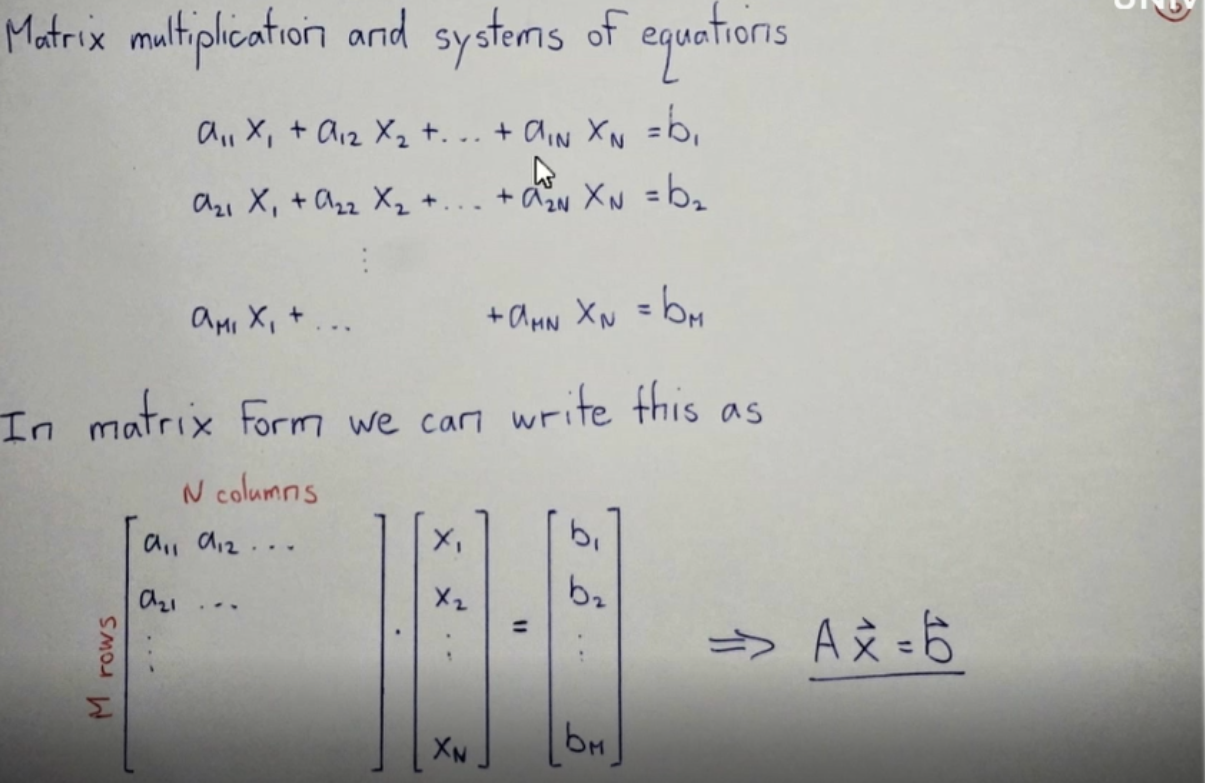 UNIV
Matrix multiplication and systems of equations
a₁₁ x₁ + a₁₂ x₂ +... + a₁N xN = b₁
a₂₁ x₁ + a₂₂ x₂ +... + a₂N xN = b₂
⋮
aM₁ x₁ + ... + aMN xN = bM
In matrix form we can write this as
N columns
M rows
[ a₁₁ a₁₂ ... ] [ x₁ ] [ b₁ ]
[ a₂₁ ... ] [ x₂ ] [ b₂ ]
[ ⋮ ] · [ ⋮ ] = [ ⋮ ] ⇒ A x⃗ = b⃗
[ ] [ xN ] [ bM ]